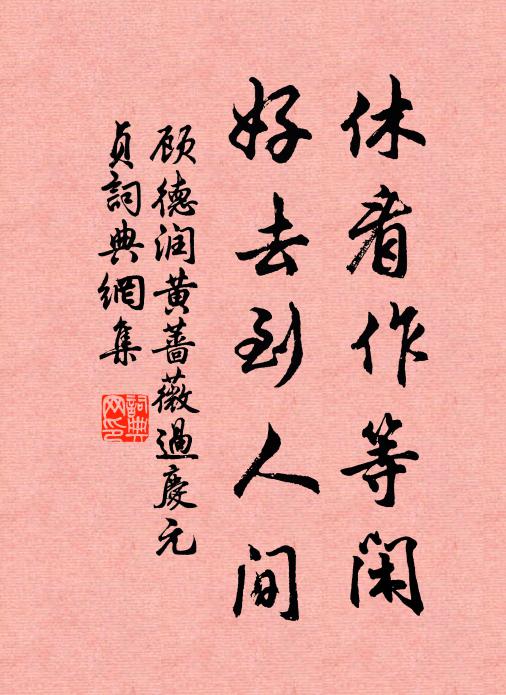 休看作等闲
好去到人间
顾德润黄蔷薇過慶元
貞詞典網集
詞典网印